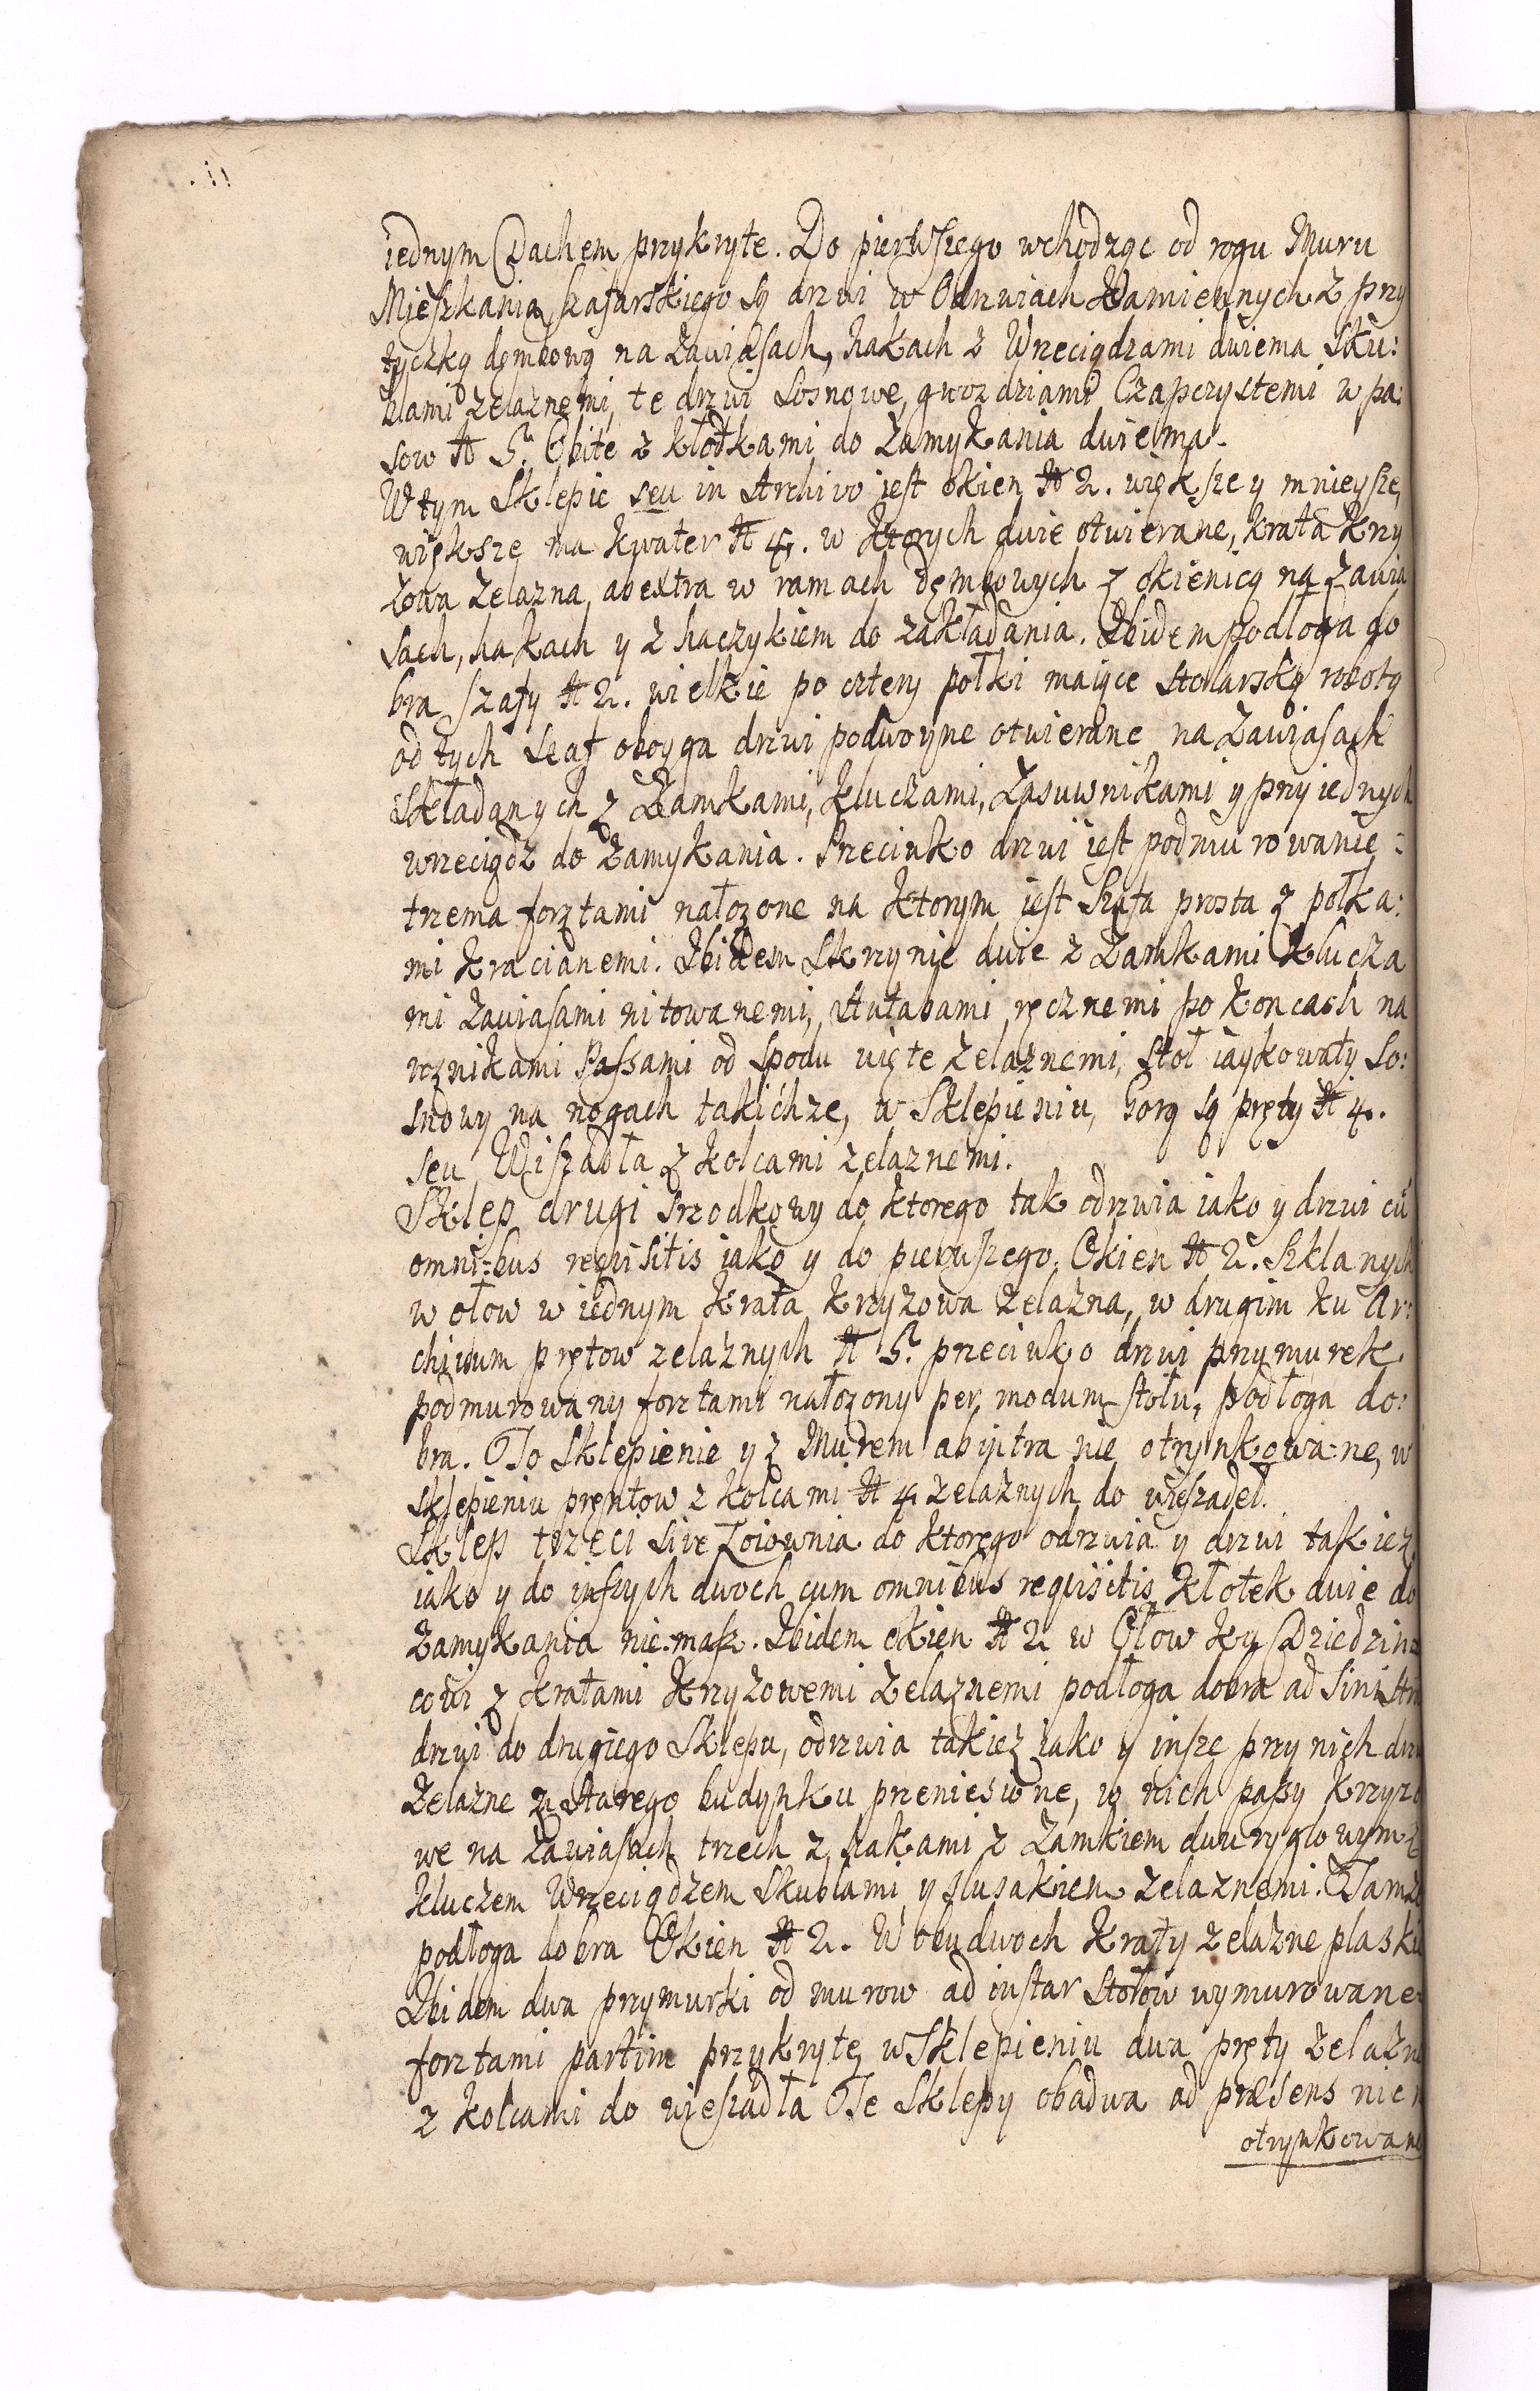 iednym Dachem przykryte. Do pierwszego wchodząc od rogu Muru
Mieszkania szafarskiego są drzwi w Odrzwiach Kamiennych z przy
tyczką dęmbową na Zawiasach, hakach z Wrzeciądzami dwiema sku:
blami żelaznemi, te drzwi Sosnowe, gwozdziami Czapczystemi w pa:
sow N 5. Obite z kłotkami do Zamykania dwiema.
W tym Sklepie seu in Archivo jest okien N 2. większe y mnieysze,
większe ma kwater N 4. w ktorych dwie otwierane, krata krzy
żowa żelazna, ab extra w ramach dęmbowych z okienicą na zawia
sach, hakach y z haczykiem do zakładania. Ibidem podłoga do
bra, szafy N 2. wielkie po cztery połki maiące stolarską robotą
od tych szaf oboyga drzwi podwoyne otwierane na Zawiasach
składanych z Zamkami, Kluczami, Zasuwnikami y przy iednych
wrzeciądz do Zamykania. Przeciwko drzwi jest podmurowanie
trzema forztami nałozone na ktorym jest Szafa prosta z połka:
mi kracianemi. Ibidem Skrzynie dwie z Zamkami Klucza
mi Zawiasami nitowanemi, Antabami ręcznemi po koncach na
roznikami Passami od spodu uięte żelaznemi, Stoł iaykowaty So:
snowy na nogach takichże, w Sklepieniu, horą są pręty N 4.
seu Wiszadła z kolcami zelaznemi.
Sklep drugi srzodkowy do ktorego tak odrzwia iako y drzwi cu
omni=bus requisitis iako y do pierwszego. Okien N 2. Szklanych
w ołow w iednym krata krzyzowa żelazna, w drugim ku Ar:
chiwum prętow zelaznych N 5. przeciwko drzwi przymurek
podmurowany forztami nałozony per modum stołu, podłoga do:
bra. To Sklepienie y z Murem ab intra nie otrynkowa=ne, w
sklepieniu prentow z kolcami N 4. żelaznych do wieszadeł.
Sklep trzeci sive Łoiownia do ktorego odrzwia y drzwi takież
iako y do inszych dwoch cum omnibus requisitis, kłotek dwie do
Zamykania nie masz. Ibidem okien N 2 w Ołow ku Dziedzin
cowi z kratami krzyżowemi żelaznemi podłoga dobra ad sinistra
drzwi do drugiego Sklepu, odrzwia takież iako y insze przy nich drzw
Zelazne z Starego budynku przeniesione, w nich passy krzyzo
we na Zawiasach trzech z hakami z Zamkiem dwuryglowym z
kluczem Wrzeciądzem Skublami y flusakiem zelaznemi. Tamże
podłoga dobra Okien N 2. W obudwoch kraty żelazne plaskie
Ibidem dwa przymurki od murow ad instar stołow wymurowane
forztami partim przykryte, w Sklepieniu dwa pręty żelazne
z kolcami do wieszadła Te Sklepy obadwa ad præsens nie
otrynkowane